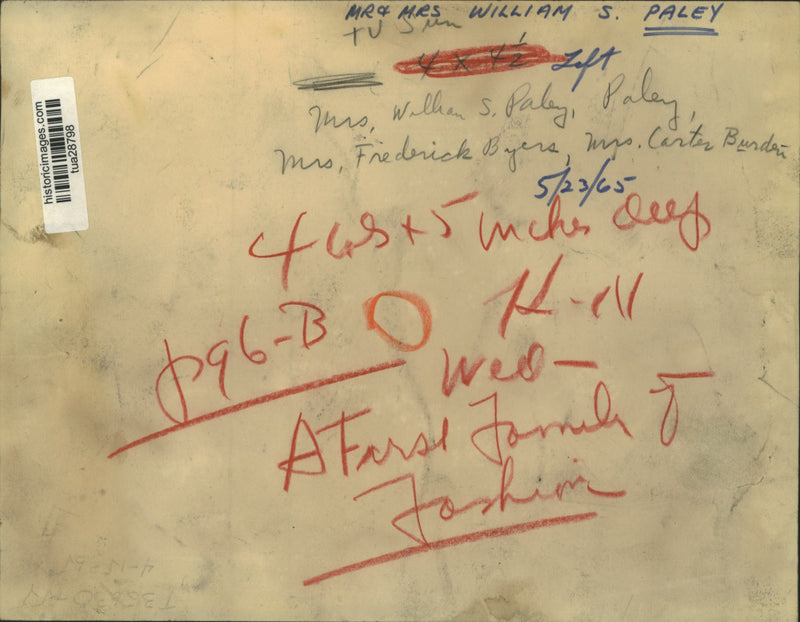 MR & MRS WILLIAM S. PALEY
TV Sun
4 x 4½ Left
historicimages.com
tua28798
Mrs, William S. Paley, Paley,
Mrs, Frederick Byers, Mrs. Carter Burden
5/23/65
4 cols + 5 inches deep
p96-B
K-11
Wed-
A First Family of
Fashion